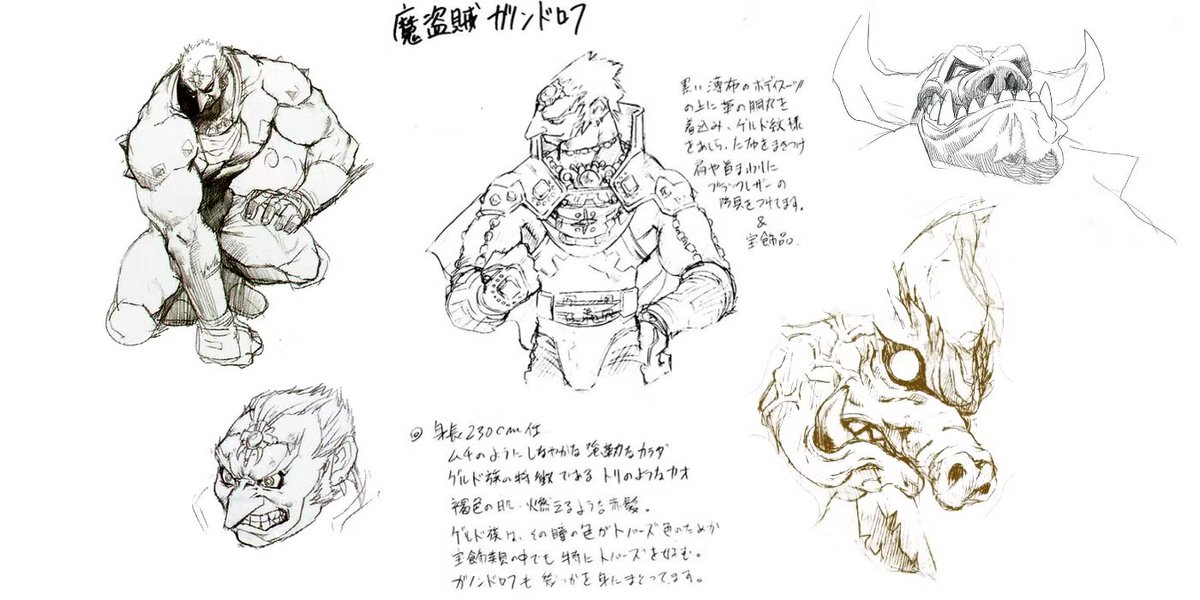 魔盗賊 ガノンドロフ
黒い薄布のボディスーツ
の上に革の胴丸を
着込み、ゲルド紋様
をあしらった布をまきつけ
肩や首まわりに
ブラックレザーの
防具をつけてます。
&
宝飾品.
◎ 身長230cm位
ムチのようにしなやかな強靭なカラダ
ゲルド族の特徴である トリのようなカオ
褐色の肌・燃えるような赤髪。
ゲルド族は、その瞳の色がトパーズ色のためか
宝飾類の中でも 特にトパーズを好む。
ガノンドロフも 身にまとってます。